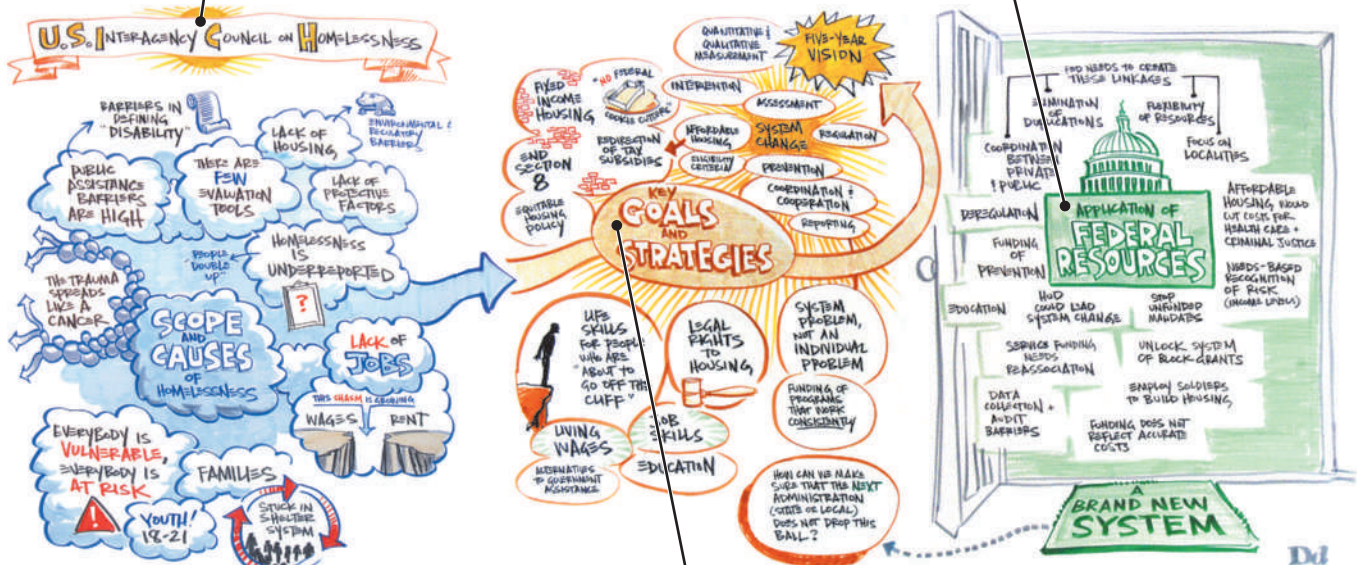 U.S. INTERAGENCY COUNCIL ON HOMELESSNESS
BARRIERS IN
DEFINING
"DISABILITY"
ENVIRONMENTAL &
REGULATORY
BARRIERS
LACK OF
HOUSING
PUBLIC
ASSISTANCE
BARRIERS
ARE HIGH
THERE ARE
FEW
EVALUATION
TOOLS
LACK OF
PROTECTIVE
FACTORS
HOMELESSNESS
IS
UNDERREPORTED
?
PEOPLE
DOUBLE
UP"
THE TRAUMA
SPREADS
LIKE A
CANCER
SCOPE
AND
CAUSES
OF
HOMELESSNESS
LACK OF
JOBS
THIS CHASM IS GROWING
WAGES
RENT
EVERYBODY IS
VULNERABLE,
EVERYBODY IS
AT RISK
!
FAMILIES
YOUTH!
18-21
STUCK IN
SHELTER
SYSTEM
QUANTITATIVE &
QUALITATIVE
MEASUREMENT
FIVE-YEAR
VISION
FIXED
INCOME
HOUSING
"NO FEDERAL
COOKIE CUTTERS"
INTERVENTION
ASSESSMENT
AFFORDABLE
HOUSING
SYSTEM
CHANGE
REGULATION
END
SECTION
8
REDIRECTION
OF TAX
SUBSIDIES
ELIGIBILITY
CRITERIA
PREVENTION
COORDINATION &
COOPERATION
REPORTING
EQUITABLE
HOUSING
POLICY
KEY
GOALS
AND
STRATEGIES
LIFE
SKILLS
FOR PEOPLE
WHO ARE
"ABOUT TO
GO OFF THE
CLIFF"
LEGAL
RIGHTS
TO
HOUSING
SYSTEM
PROBLEM,
NOT AN
INDIVIDUAL
PROBLEM
FUNDING OF
PROGRAMS
THAT WORK
CONSISTENTLY
LIVING
WAGES
JOB
SKILLS
ALTERNATIVES
TO GOVERNMENT
ASSISTANCE
EDUCATION
HOW CAN WE MAKE
SURE THAT THE NEXT
ADMINISTRATION
(STATE OR LOCAL)
DOES NOT DROP THIS
BALL?
FED NEEDS TO CREATE
THESE LINKAGES
ELIMINATION
OF
DUPLICATIONS
FLEXIBILITY
OF RESOURCES
COORDINATION
BETWEEN
PRIVATE
& PUBLIC
FOCUS ON
LOCALITIES
APPLICATION OF
FEDERAL
RESOURCES
DEREGULATION
FUNDING
OF
PREVENTION
AFFORDABLE
HOUSING WOULD
CUT COSTS FOR
HEALTH CARE +
CRIMINAL JUSTICE
NEEDS-BASED
RECOGNITION
OF RISK
(INCOME LEVELS)
EDUCATION
HUD
COULD LEAD
SYSTEM CHANGE
STOP
UNFUNDED
MANDATES
SERVICE FUNDING
NEEDS
REASSOCIATION
UNLOCK SYSTEM
OF BLOCK GRANTS
DATA
COLLECTION +
AUDIT
BARRIERS
EMPLOY SOLDIERS
TO BUILD HOUSING
FUNDING DOES NOT
REFLECT ACCURATE
COSTS
A
BRAND NEW
SYSTEM
Dd